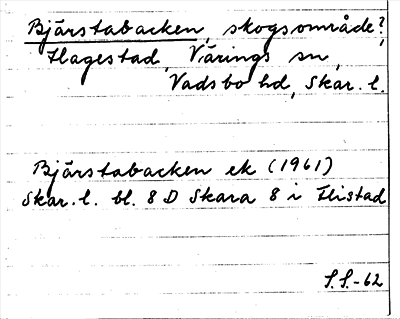 Bjärstabacken, skogsområde?,
Hagestad, Värings sn,
Vadsbo hd, Skar. l.
Bjärstabacken ek (1961)
Skar. l. bl. 8 D Skara 8 i Flistad
S.S.-62